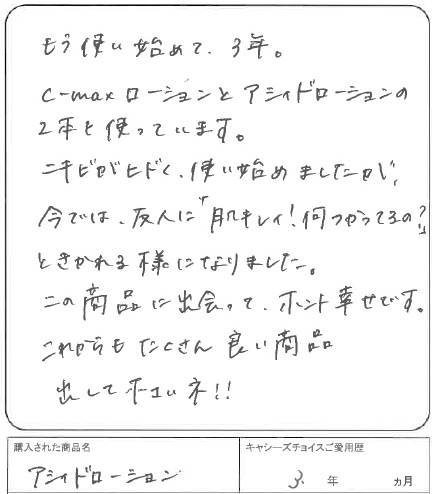 もう使い始めて、3年。
C-maxローションとアシィドローションの
2本を使っています。
ニキビがヒドく、使い始めましたが、
今では、友人に「肌キレイ!何つかってるの?」
ときかれる様になりました。
この商品に出会って、ホント幸せです。
これからもたくさん良い商品
出して下さいネ!!
購入された商品名
キャシーズチョイスご愛用歴
アシィドローション
3 年 ヵ月